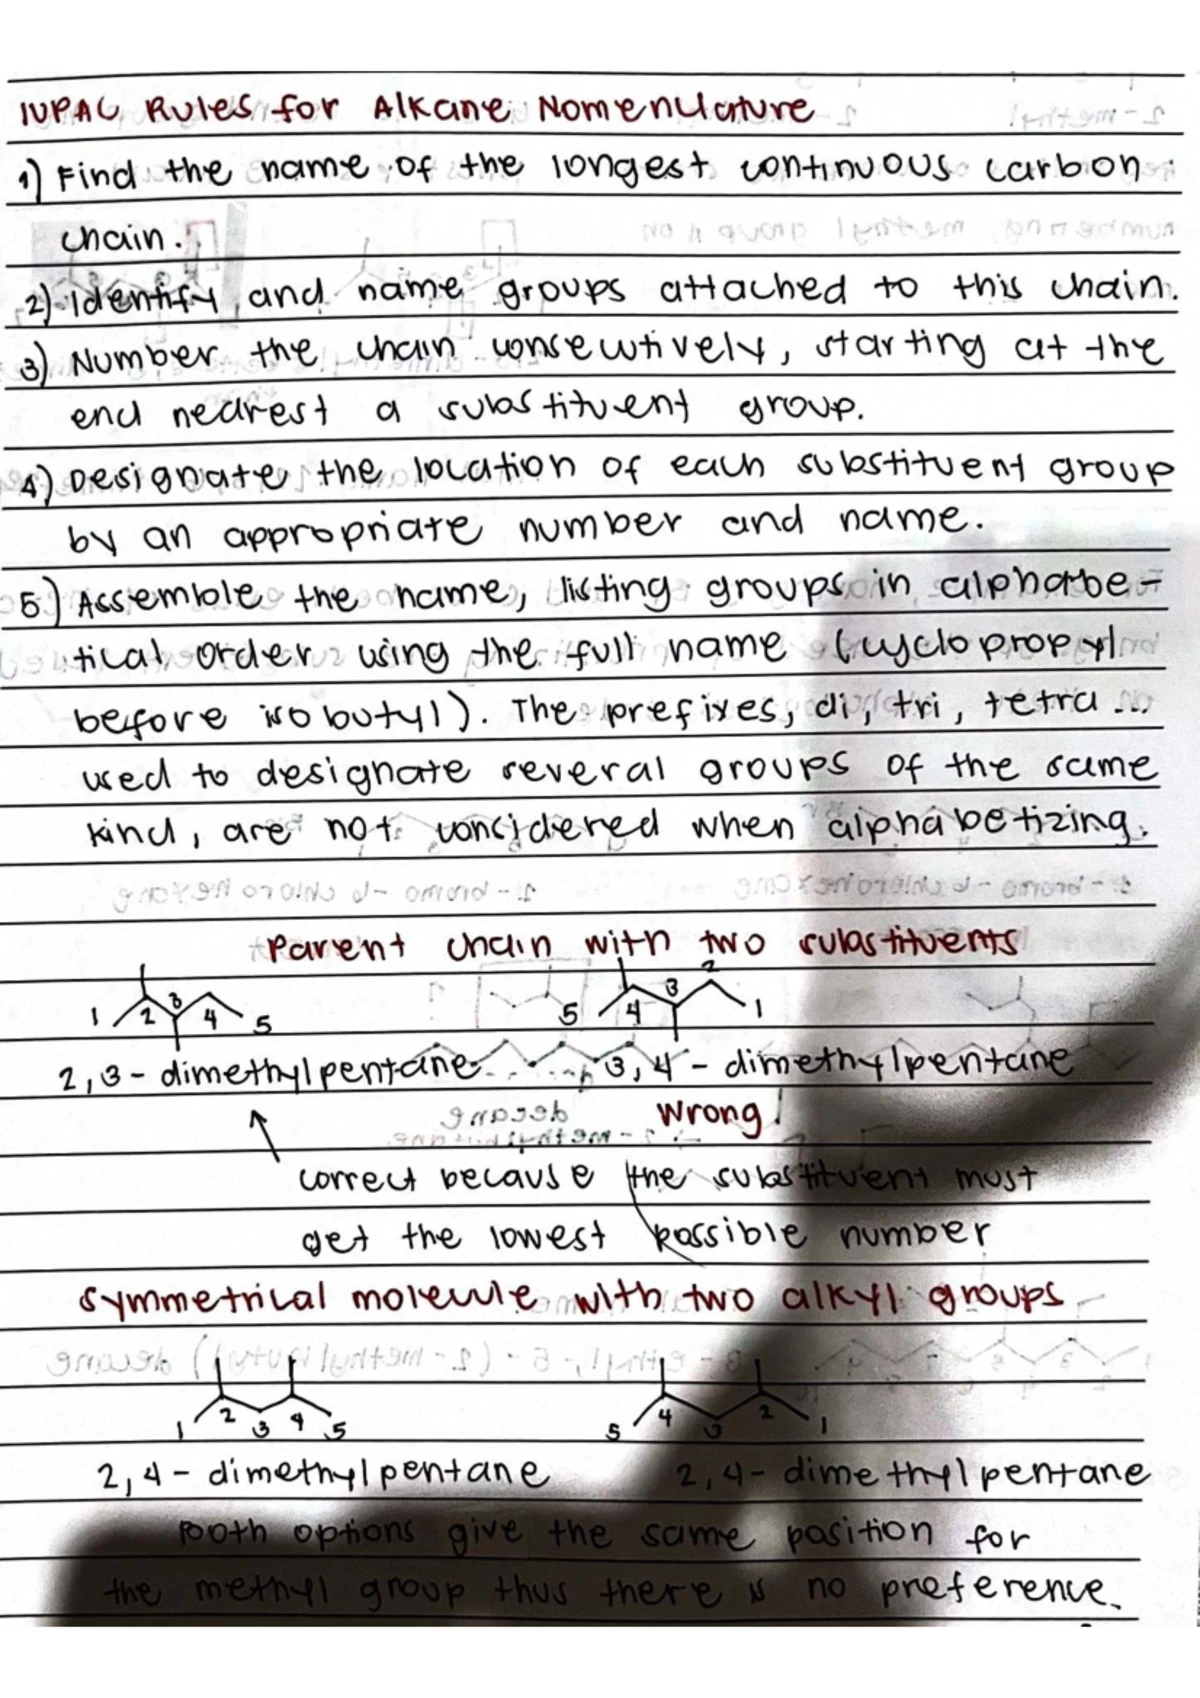 IUPAC Rules for Alkane Nomenclature
1) Find the name of the longest continuous carbon
chain.
2) Identify and name groups attached to this chain.
3) Number the chain consecutively, starting at the
end nearest a substituent group.
4) Designate the location of each substituent group
by an appropriate number and name.
5) Assemble the name, listing groups in alphabe-
tical order using the full name (cyclopropyl
before isobutyl). The prefixes, di, tri, tetra...
used to designate several groups of the same
kind, are not considered when alphabetizing.
Parent chain with two substituents
1 2 3 4 5 5 4 3 2 1
2,3-dimethylpentane 3,4-dimethylpentane
wrong!
correct because the substituent most
get the lowest possible number
symmetrical molecule with two alkyl groups
1 2 3 4 5 5 4 3 2 1
2,4-dimethylpentane 2,4-dimethylpentane
Both options give the same position for
the methyl group thus there is no preference.